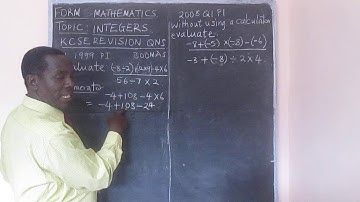 FORM MATHEMATICS
TOPIC: INTEGERS
KCSE REVISION QNS
1999 P1 BODMAS
(-8÷2)
56÷7×2
-4+108-4×6
= -4+108-24
2005 Q1 P1
without using a calculator
evaluate.
-8+(-5)×(-8)-(-6)
-3+(-8)÷2×4